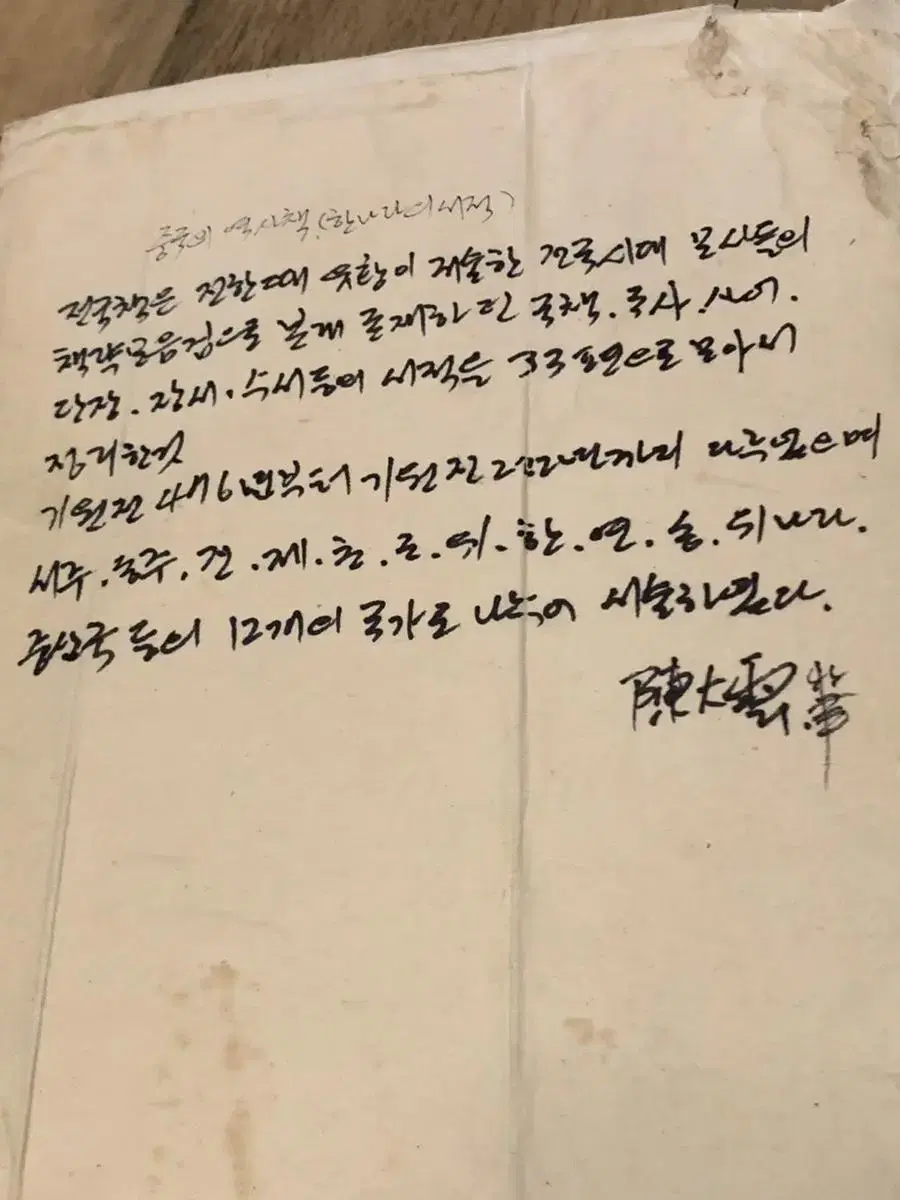 중국의 역사책 (한나라의 서적)
전국책은 전한때 유향이 저술한 전국시대 모사들의
책략모음집으로 본래 존재하던 국책. 국사. 사어.
단장. 장서. 수서등의 서적을 33편으로 모아서
정리한것
기원전 476년부터 기원전 222년까지 다루었으며
서주. 동주. 진. 제. 초. 조. 위. 한. 연. 송. 위나라.
중산국 등의 12개의 국가로 나누어 서술하였다.
陳大雲